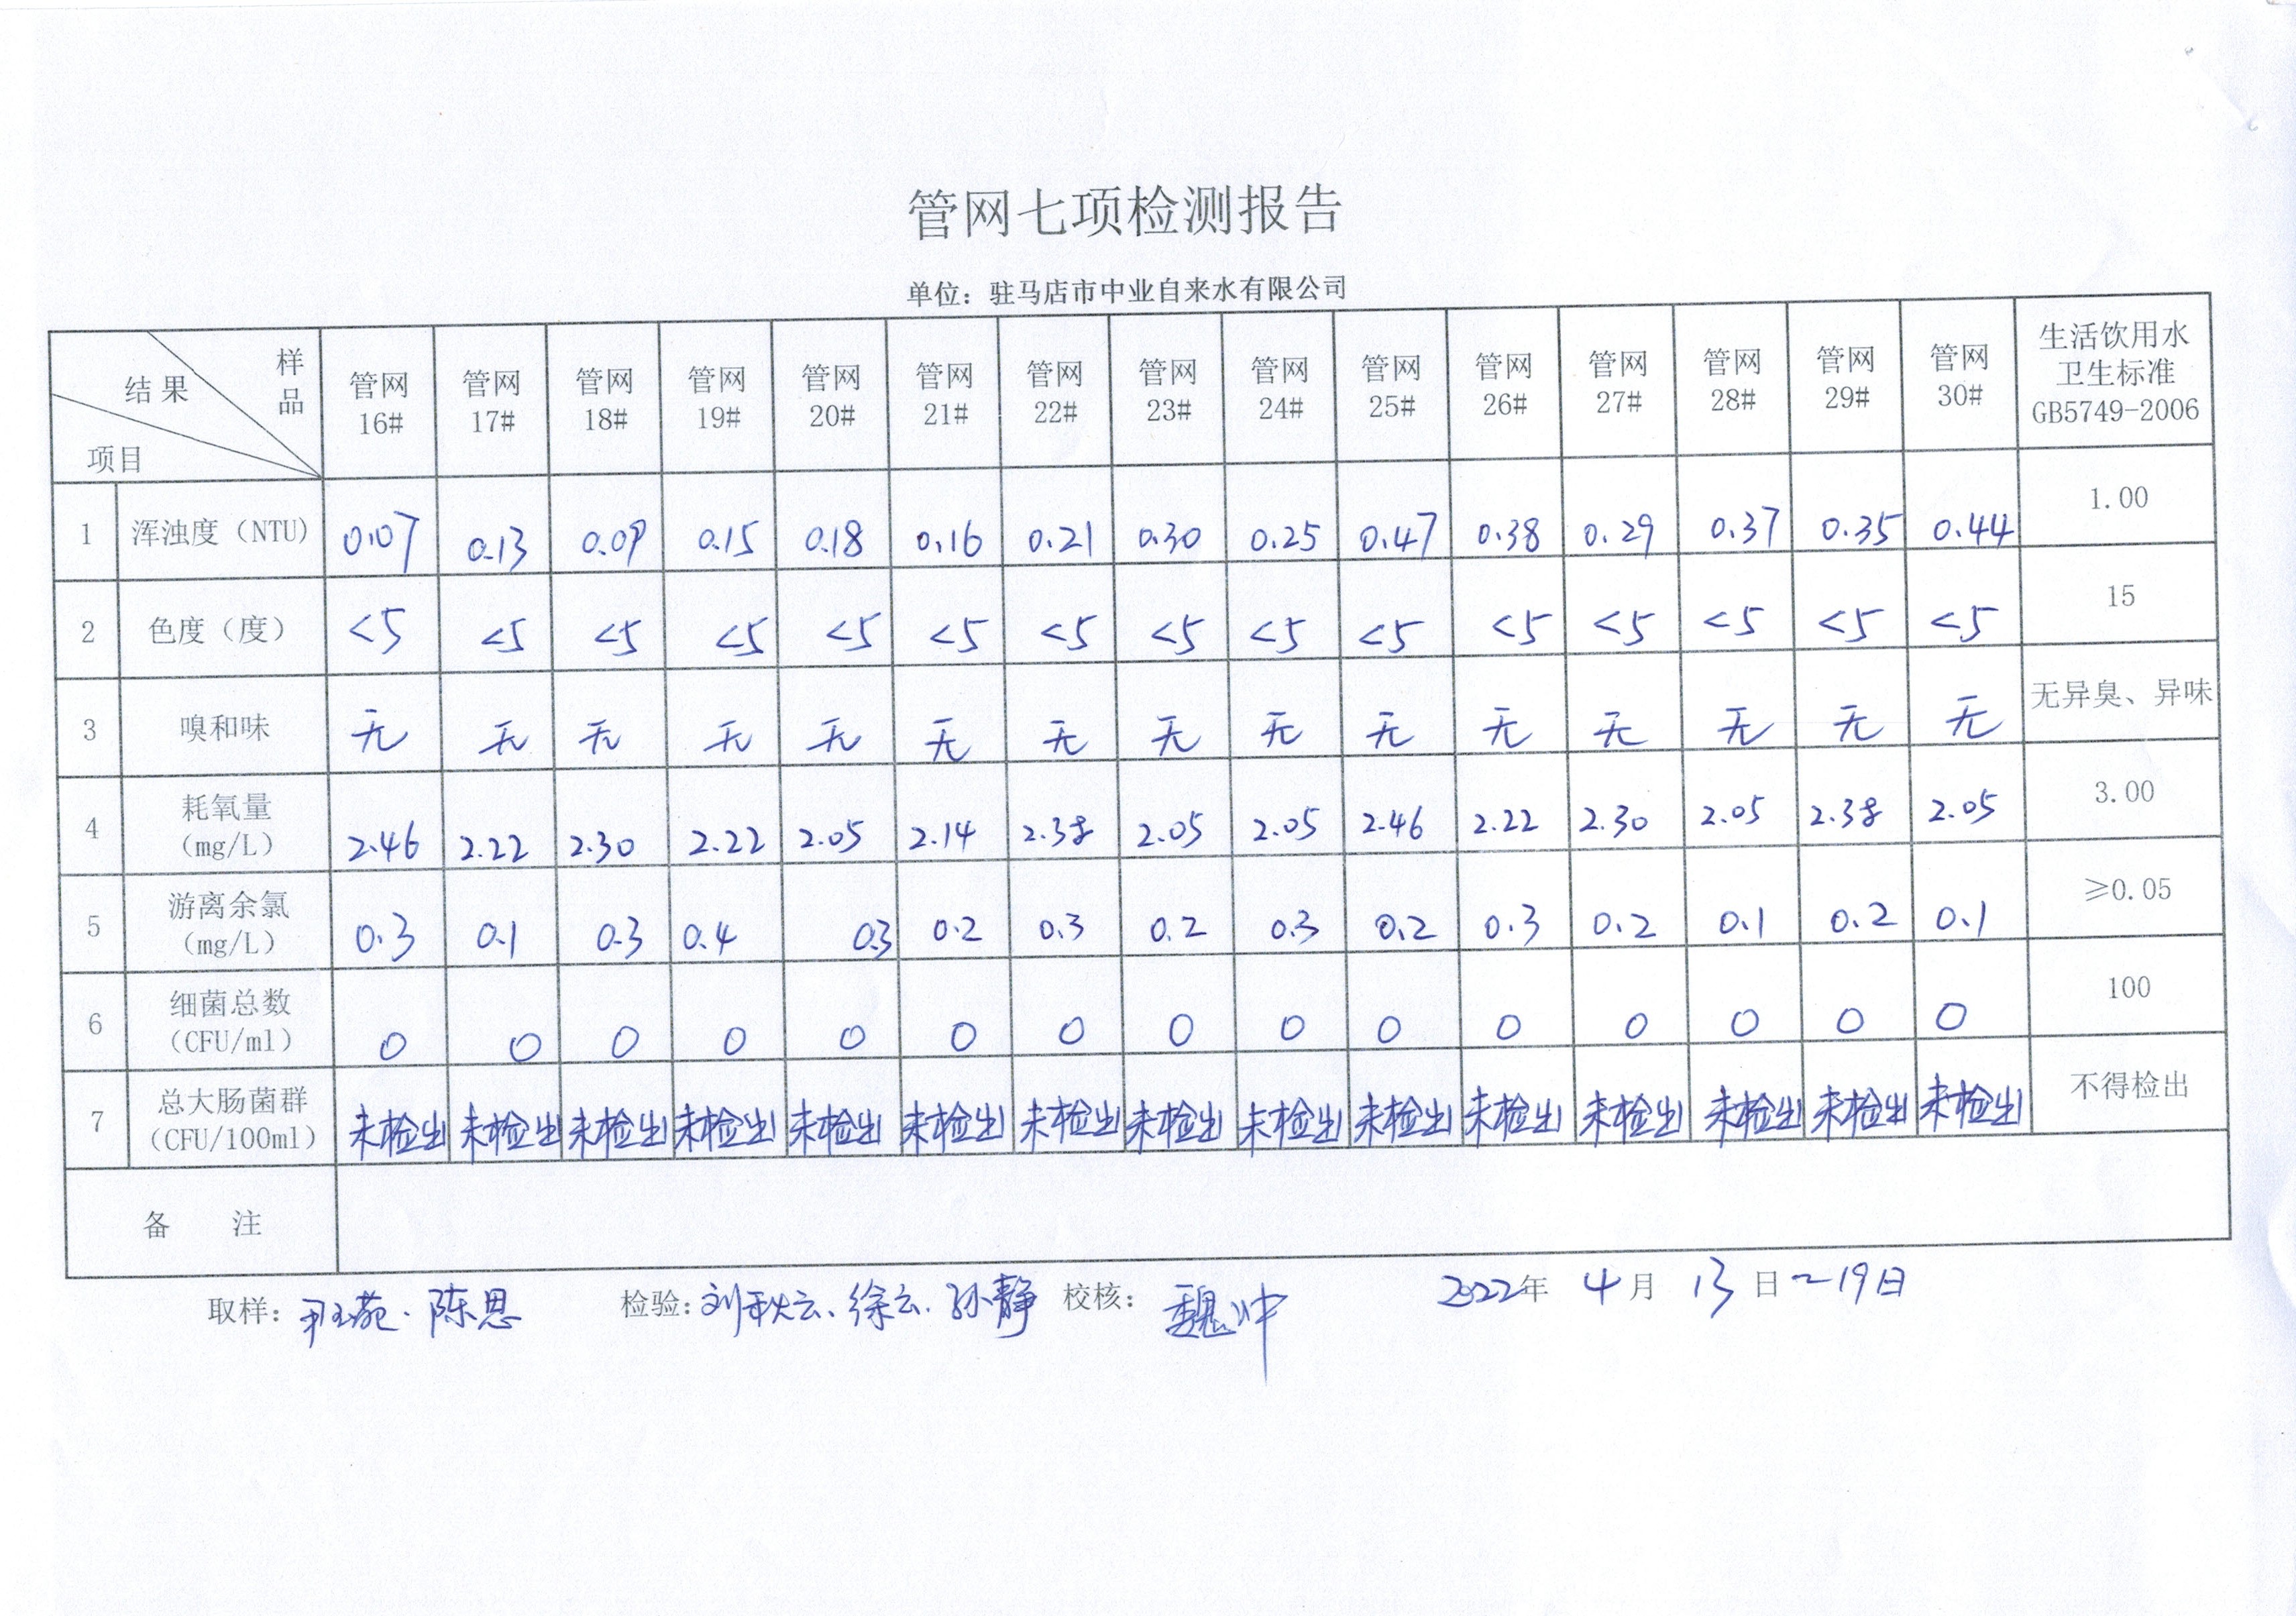 管网七项检测报告
单位：驻马店市中业自来水有限公司
样品 结果 项目 管网16# 管网17# 管网18# 管网19# 管网20# 管网21# 管网22# 管网23# 管网24# 管网25# 管网26# 管网27# 管网28# 管网29# 管网30# 生活饮用水卫生标准GB5749-2006
1 浑浊度（NTU) 0.07 0.13 0.09 0.15 0.18 0.16 0.21 0.30 0.25 0.47 0.38 0.29 0.37 0.35 0.44 1.00
2 色度（度） <5 <5 <5 <5 <5 <5 <5 <5 <5 <5 <5 <5 <5 <5 <5 15
3 嗅和味 无 无 无 无 无 无 无 无 无 无 无 无 无 无 无 无异臭、异味
4 耗氧量（mg/L） 2.46 2.22 2.30 2.22 2.05 2.14 2.38 2.05 2.05 2.46 2.22 2.30 2.05 2.38 2.05 3.00
5 游离余氯（mg/L） 0.3 0.1 0.3 0.4 0.3 0.2 0.3 0.2 0.3 0.2 0.3 0.2 0.1 0.2 0.1 ≥0.05
6 细菌总数（CFU/ml） 0 0 0 0 0 0 0 0 0 0 0 0 0 0 0 100
7 总大肠菌群（CFU/100ml） 未检出 未检出 未检出 未检出 未检出 未检出 未检出 未检出 未检出 未检出 未检出 未检出 未检出 未检出 未检出 不得检出
备 注
取样：尹玉苑、陈思 检验：刘秋云、徐云、孙静 校核：魏冲 2022年 4月 13日～19日